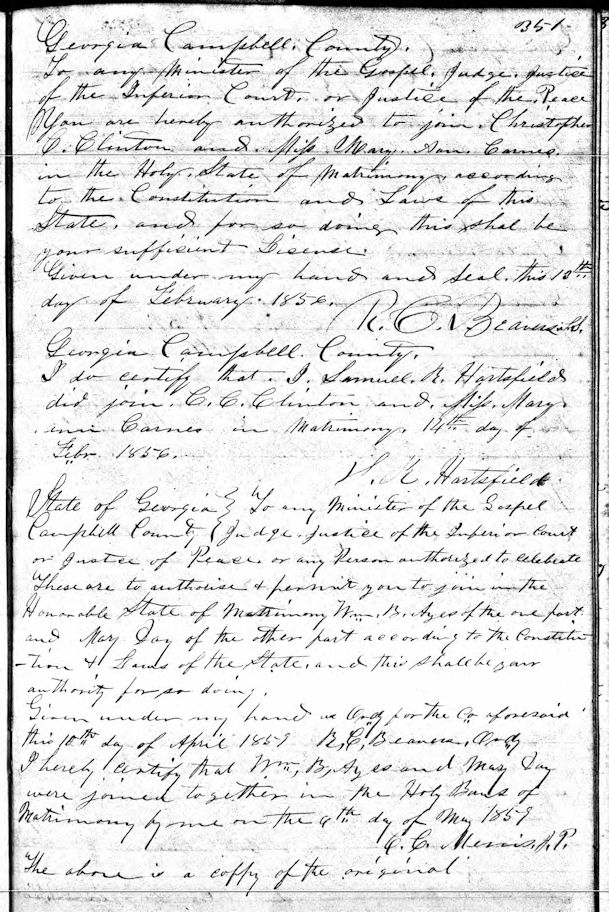 351
Georgia Campbell. County.
To any Minister of the Gospel. Judge. Justice
of the Inferior Court. or Justice of the Peace
You are hereby authorized to join. Christopher
C. Clinton and. Miss Mary. Ann. Carnes.
in the Holy. State of Matrimony. according
to the Constitution and Laws of this
State. and for so doing this shal be
your sufficient Lisense.
Given under my hand and Seal. this 13th
day of February. 1856.
R. C. Beavers. L.S.
Georgia Campbell. County.
I do certify that. I. Samuel. R. Hartsfield
did join. C. C. Clinton and. Miss. Mary.
Carnes in Matrimony. 14th day of
Febr. 1856.
S. R. Hartsfield
State of Georgia } To any Minister of the Gospel
Campbell County { Judge. Justice of the Inferior Court
or Justce of Peace. or any Person authorized to celebrate
These are to authorise & permit you to join in the
Honorable State of Matrimony Wm. B. Ayes of the one part.
and May Day of the other part according to the Constitu
-tion & Laws of the State. and this shall be your
authority for so doing.
Given under my hand as Ordy for the Co aforesaid
this 10th day of April 1859 R, C, Beavers, Ordy
I hereby certify that Wm, B, Ayes and May Day
were joined together in the Holy Bans of
Matrimony by me on the day of May 1859
C. C. J. P.
The above is a coppy of the original